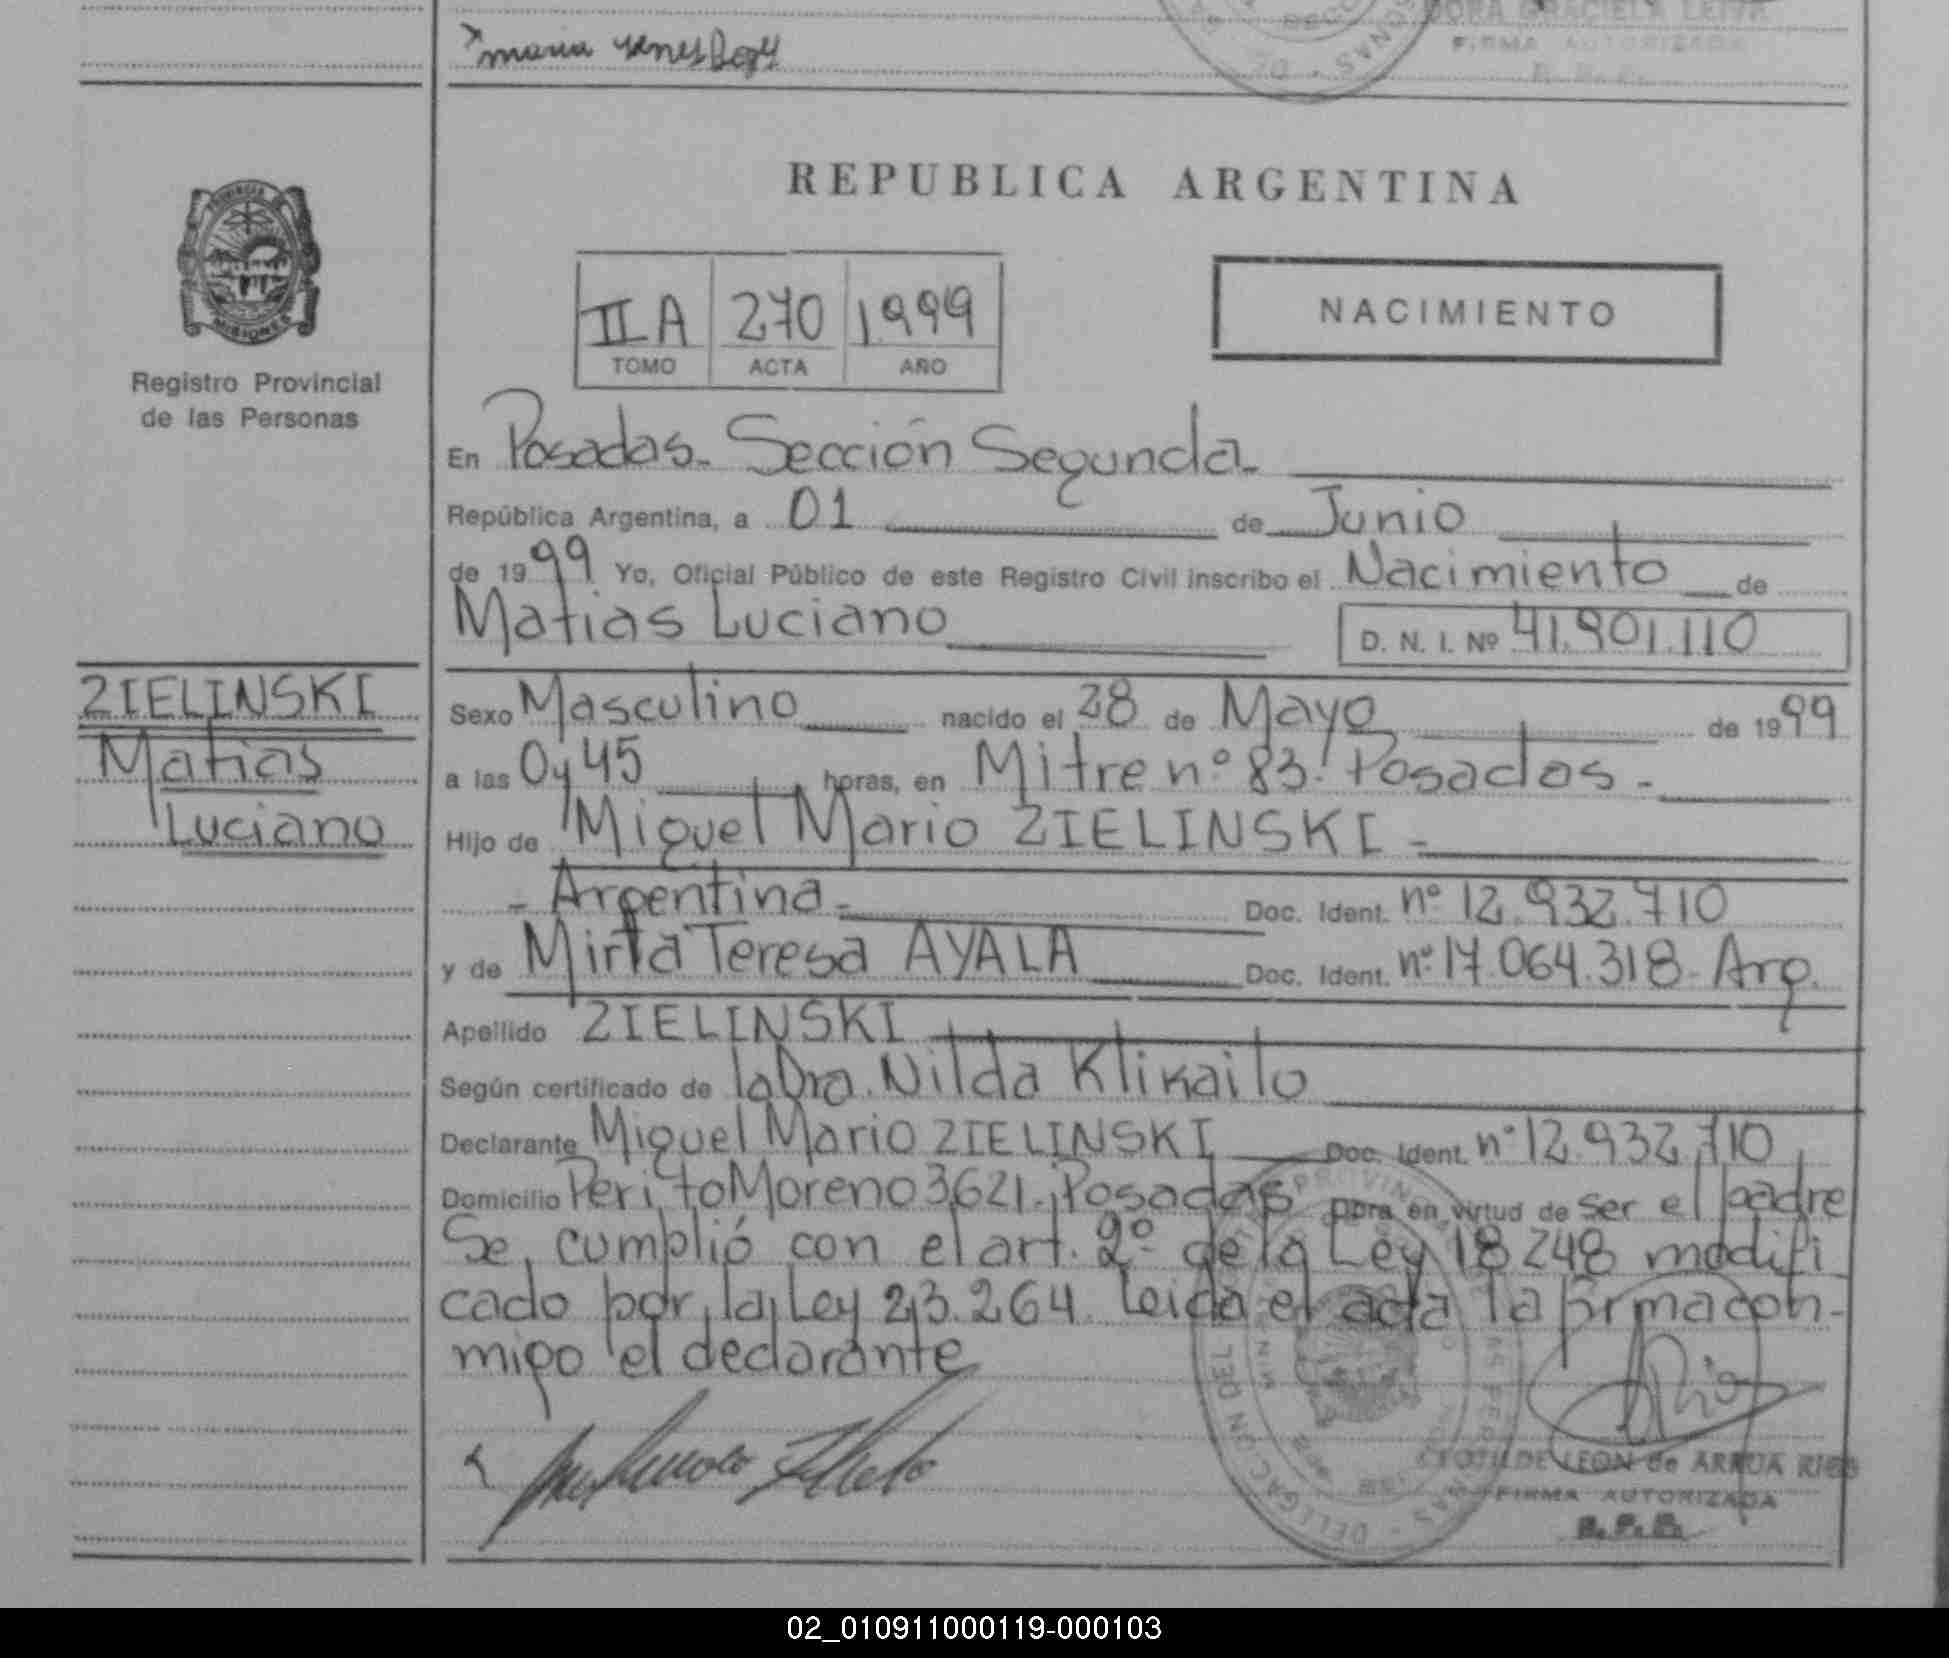 maria
REPUBLICA ARGENTINA
PROVINCIA DE MISIONES
Registro Provincial
de las Personas
II A 270 1.999
TOMO ACTA AÑO
NACIMIENTO
En Posadas. Sección Segunda.
República Argentina, a 01 de Junio
de 1999 Yo, Oficial Público de este Registro Civil inscribo el Nacimiento de
Matias Luciano D. N. I. Nº 41.901.110
ZIELINSKI
Matias
Luciano
Sexo Masculino nacido el 28 de Mayo de 1999
a las 0y45 horas, en Mitre nº 83. Posadas.-
Hijo de Miguel Mario ZIELINSKI-
- Argentina.- Doc. Ident. nº 12.932.710
y de Mirta Teresa AYALA Doc. Ident. nº 17.064.318- Arg.
Apellido ZIELINSKI
Según certificado de la Dra. Nilda Klikailo
Declarante Miguel Mario ZIELINSKI Doc. Ident. nº 12.932.710
Domicilio Perito Moreno 3621. Posadas obra en virtud de ser el padre
Se cumplió con el art. 2º de la Ley 18248 modifi
cado por la Ley 23.264. Leida el acta la firma con-
migo el declarante
CLOTILDE LEON de ARRUA RIOS
FIRMA AUTORIZADA
R. P. P.
02_010911000119-000103